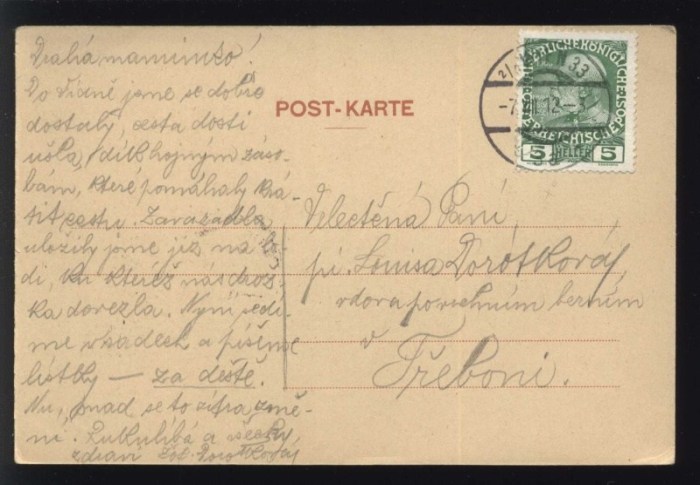 Drahá maminko!
Do Vídně jsme se dobře
dostaly, cesta dosti
ušla, dík hojným záso-
bám, které pomáhaly krá-
tit cestu. Zavazadla
uložily jsme již na lo-
di, ku kteréž nás drož-
ka dovezla. Nyní sedí-
me v sadech a píšeme
lístky — za deště.
Nu, snad se to zítra změ-
ní. Ruku líbá a všecky
zdraví Dorotková
POST-KARTE
KAISERLICHEKÖNIGLICHE ÖSTERREICHISCHE
5 HELLER 5
33
-7.VII.12-3
Velectěná Paní,
pí. Louisa Dorotková,
vdova po vrchním berním
v
Třeboni.